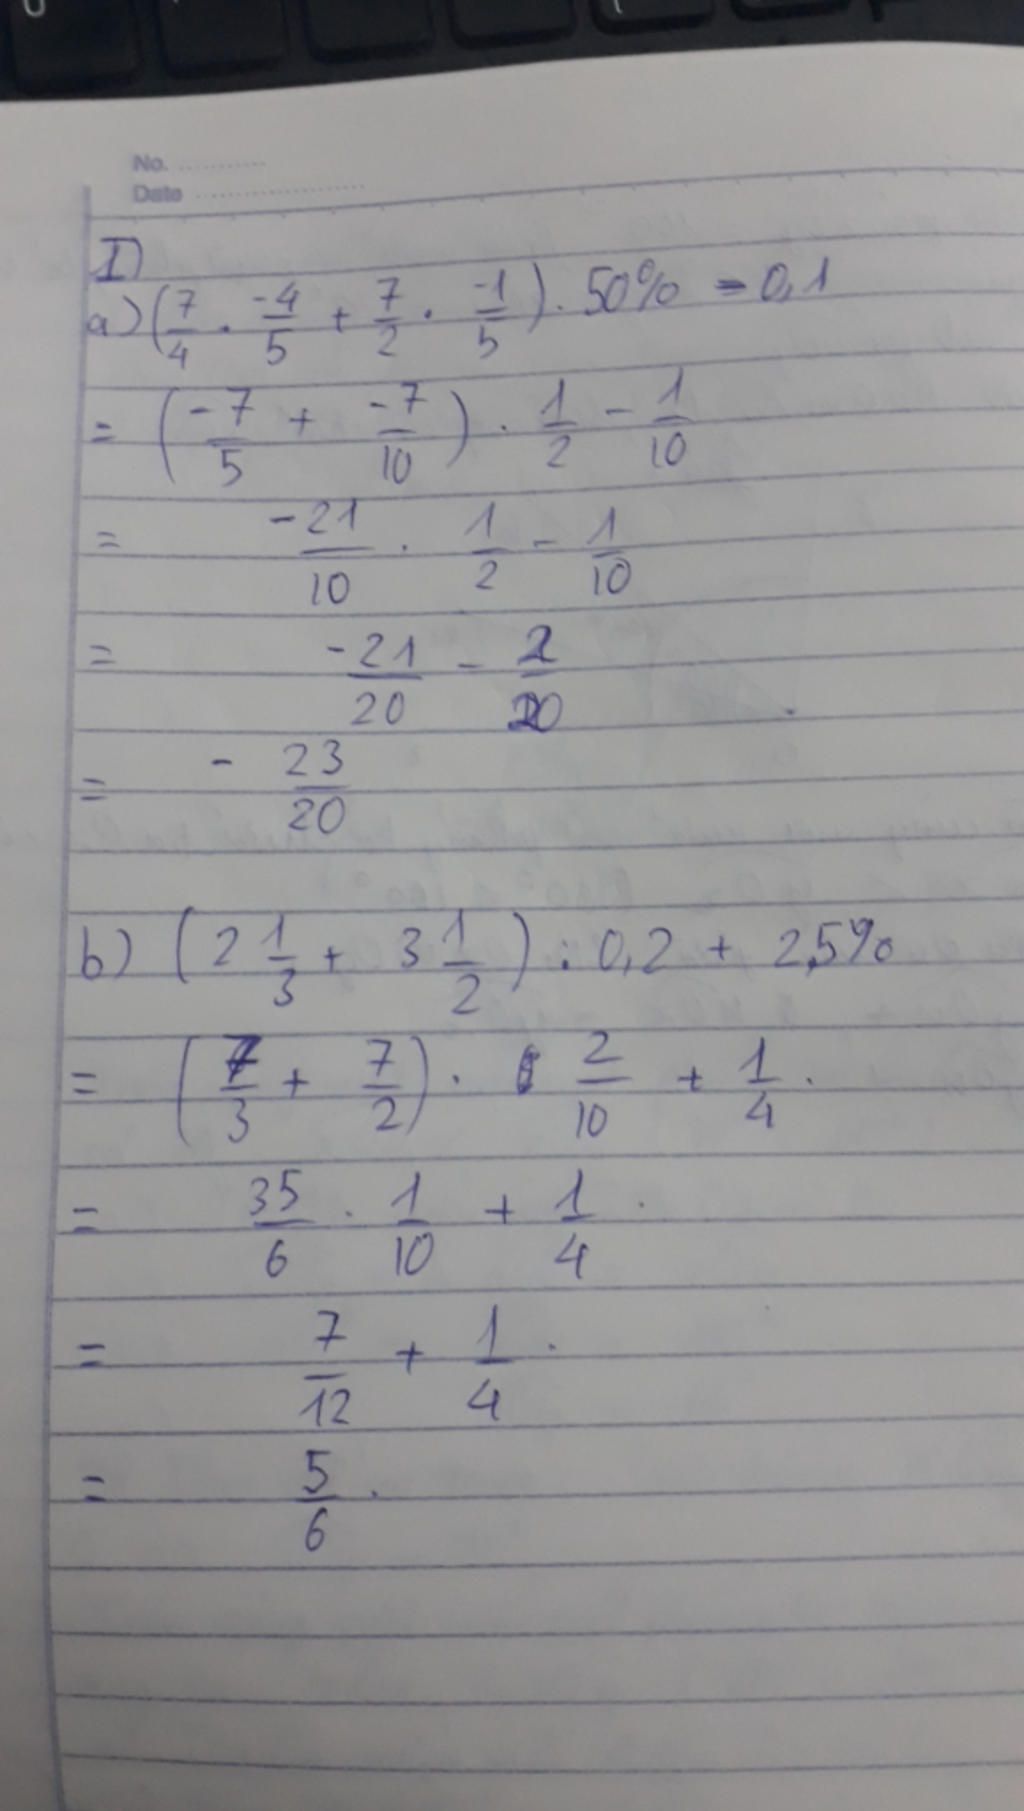 No. ............
Date ....................
I)
a) (7/4 . -4/5 + 7/2 . -1/5) . 50% - 0,1
= (-7/5 + -7/10) . 1/2 - 1/10
= -21/10 . 1/2 - 1/10
= -21/20 - 2/20
= - 23/20
b) (2 1/3 + 3 1/2) : 0,2 + 25%
= (7/3 + 7/2) . 2/10 + 1/4 .
= 35/6 . 1/10 + 1/4 .
= 7/12 + 1/4 .
= 5/6 .